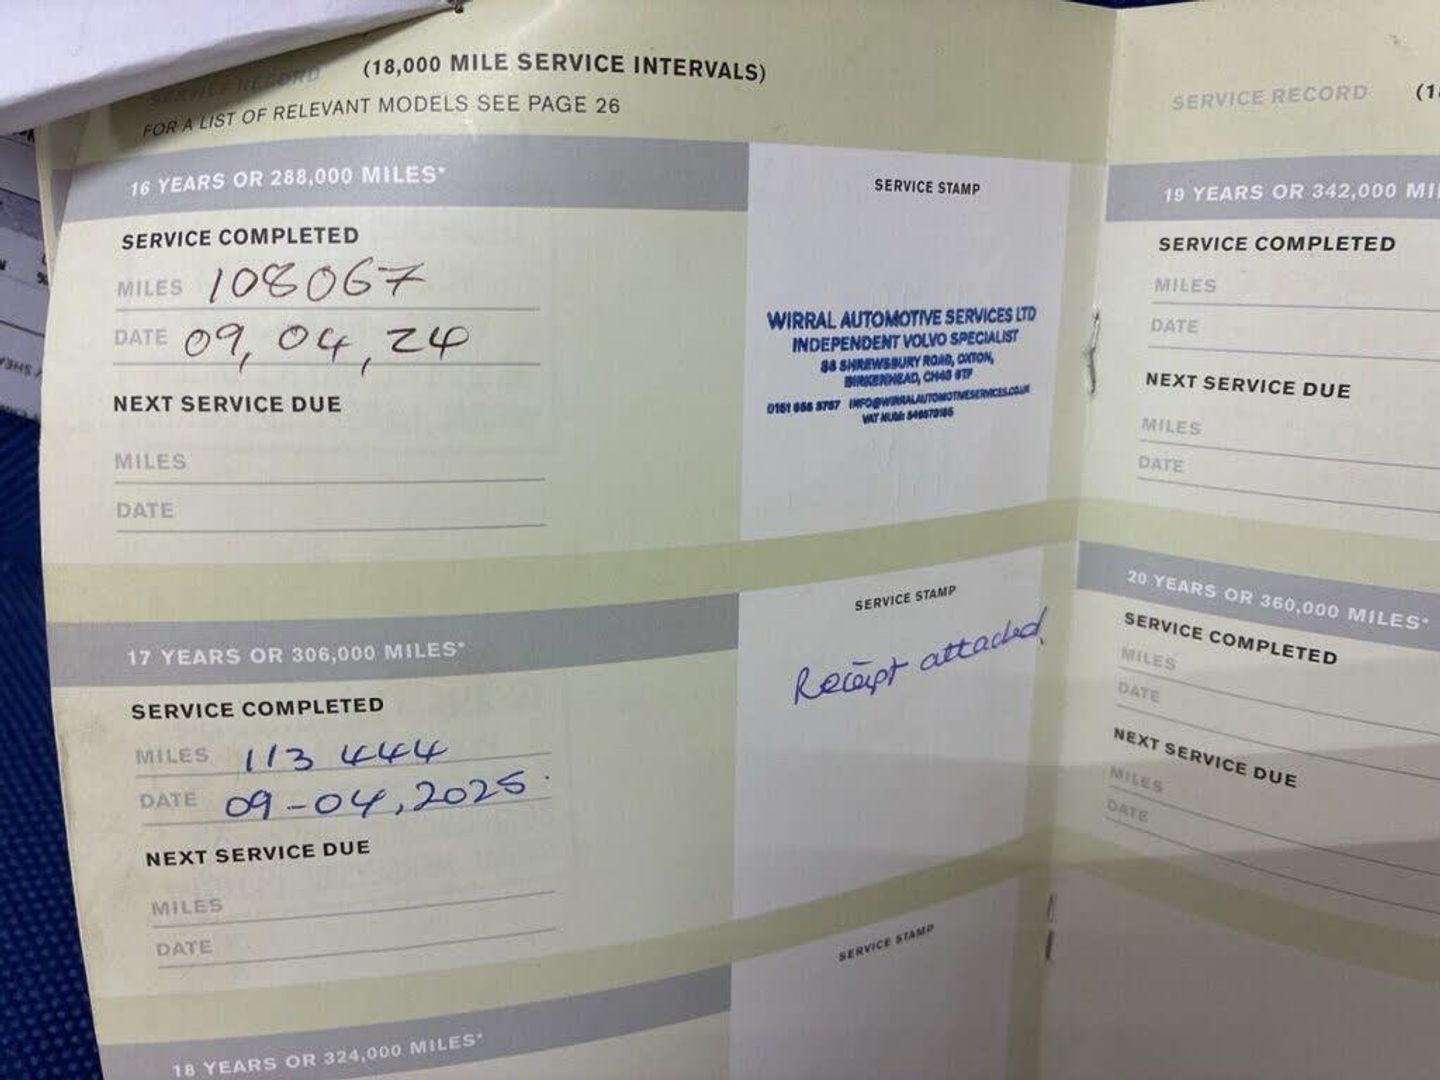 SERVICE RECORD (18,000 MILE SERVICE INTERVALS)
FOR A LIST OF RELEVANT MODELS SEE PAGE 26
16 YEARS OR 288,000 MILES*
SERVICE COMPLETED
MILES 108067
DATE 09,04,24
NEXT SERVICE DUE
MILES
DATE
SERVICE STAMP
WIRRAL AUTOMOTIVE SERVICES LTD
INDEPENDENT VOLVO SPECIALIST
SHREWSBURY ROAD, OXTON,
BIRKENHEAD,
INFO@WIRRALAUTOMOTIVESERVICES.CO.UK
17 YEARS OR 306,000 MILES*
SERVICE COMPLETED
MILES 113 444
DATE 09-04,2025.
NEXT SERVICE DUE
MILES
DATE
SERVICE STAMP
Receipt attached.
18 YEARS OR 324,000 MILES*
SERVICE STAMP
SERVICE RECORD (1
19 YEARS OR 342,000 MI
SERVICE COMPLETED
MILES
DATE
NEXT SERVICE DUE
MILES
DATE
20 YEARS OR 360,000 MILES*
SERVICE COMPLETED
MILES
DATE
NEXT SERVICE DUE
MILES
DATE